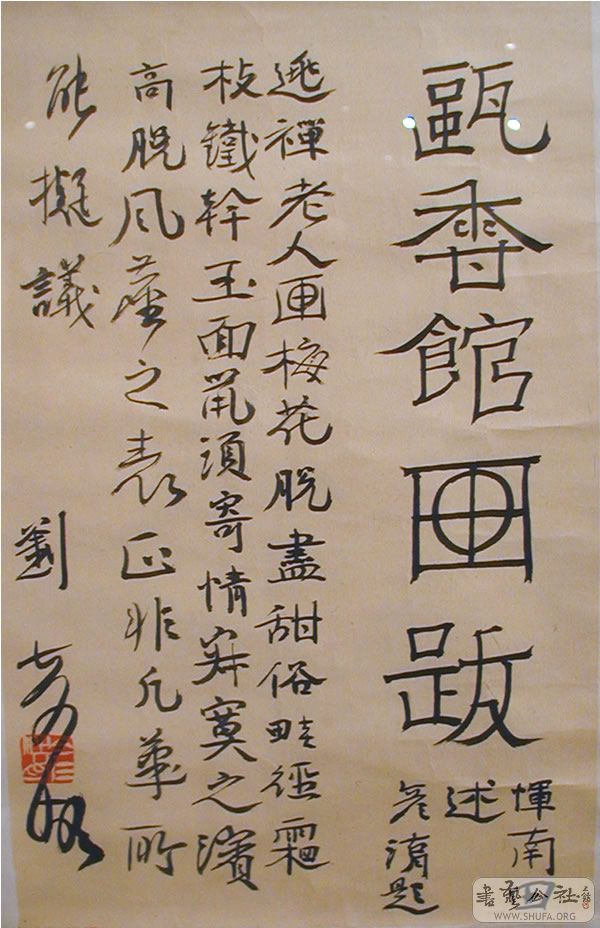 甌香館画跋
惲南田
述
題
逃禪老人画梅花脫盡甜俗畦徑霜
枝鐵幹玉面鼠須寄情寂寞之濱
高脫風塵之表正非凡筆所
能擬議
劉
書藝公社
WWW.SHUFA.ORG